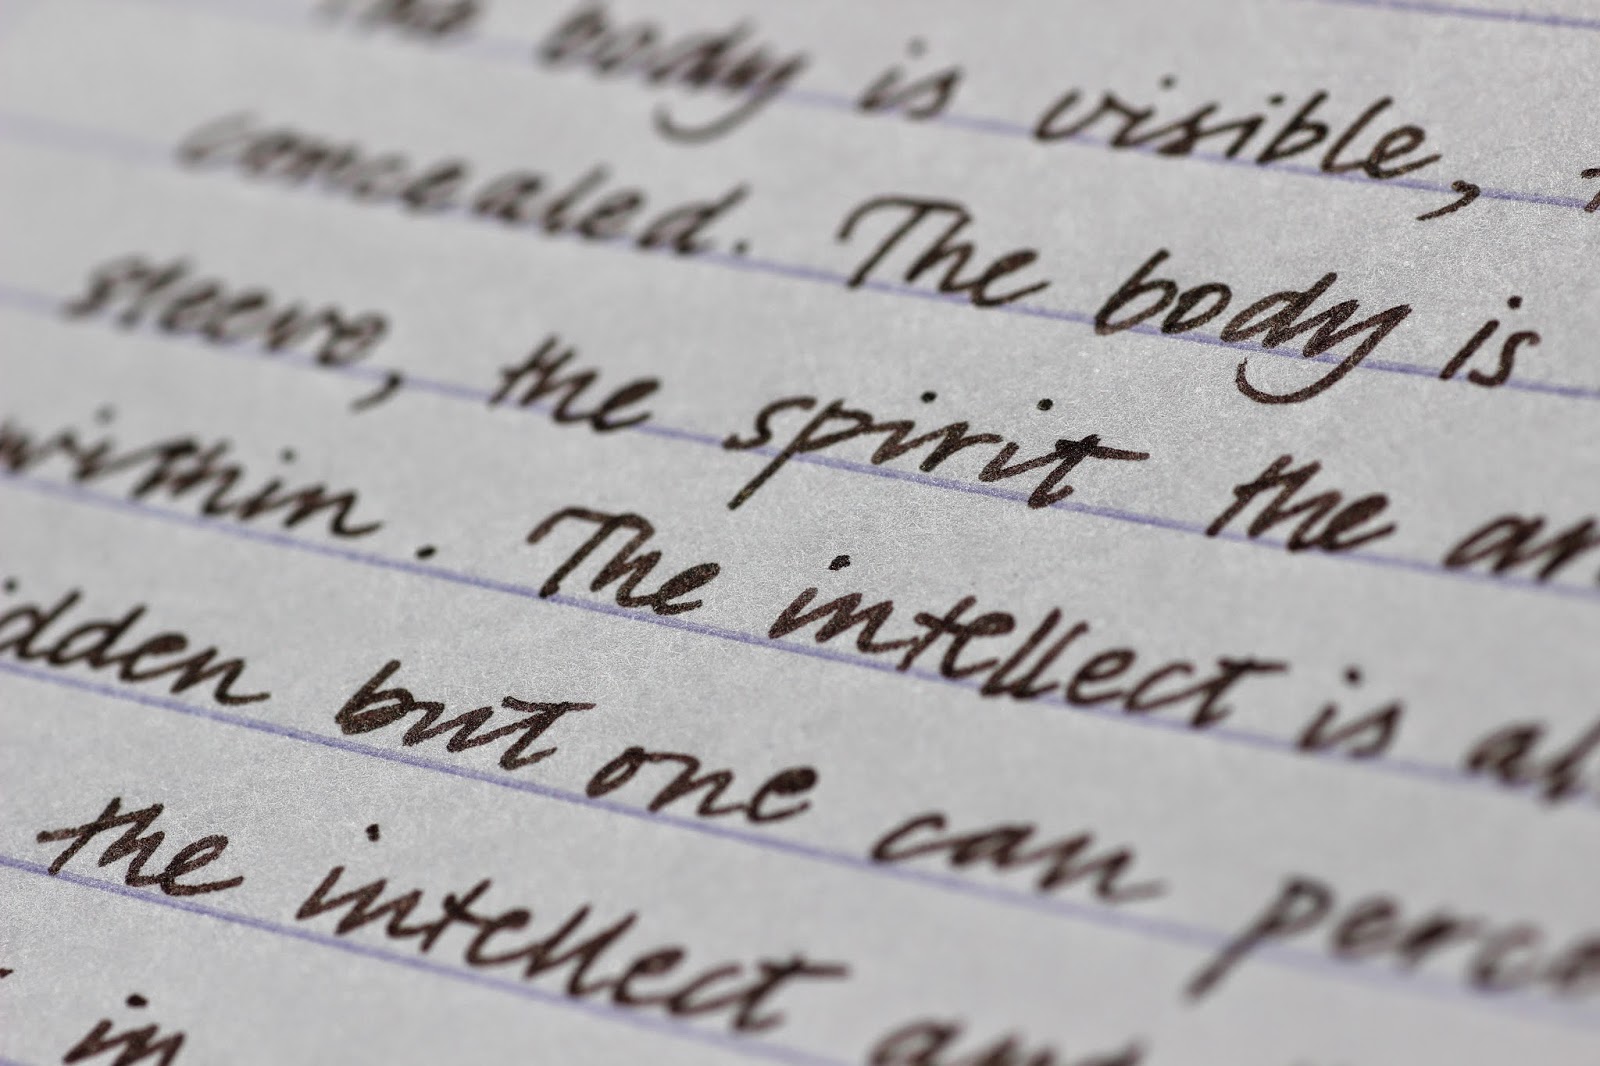 The body is visible,
concealed. The body is
sleeve, the spirit the
within. The intellect is
but one can
the intellect and
in